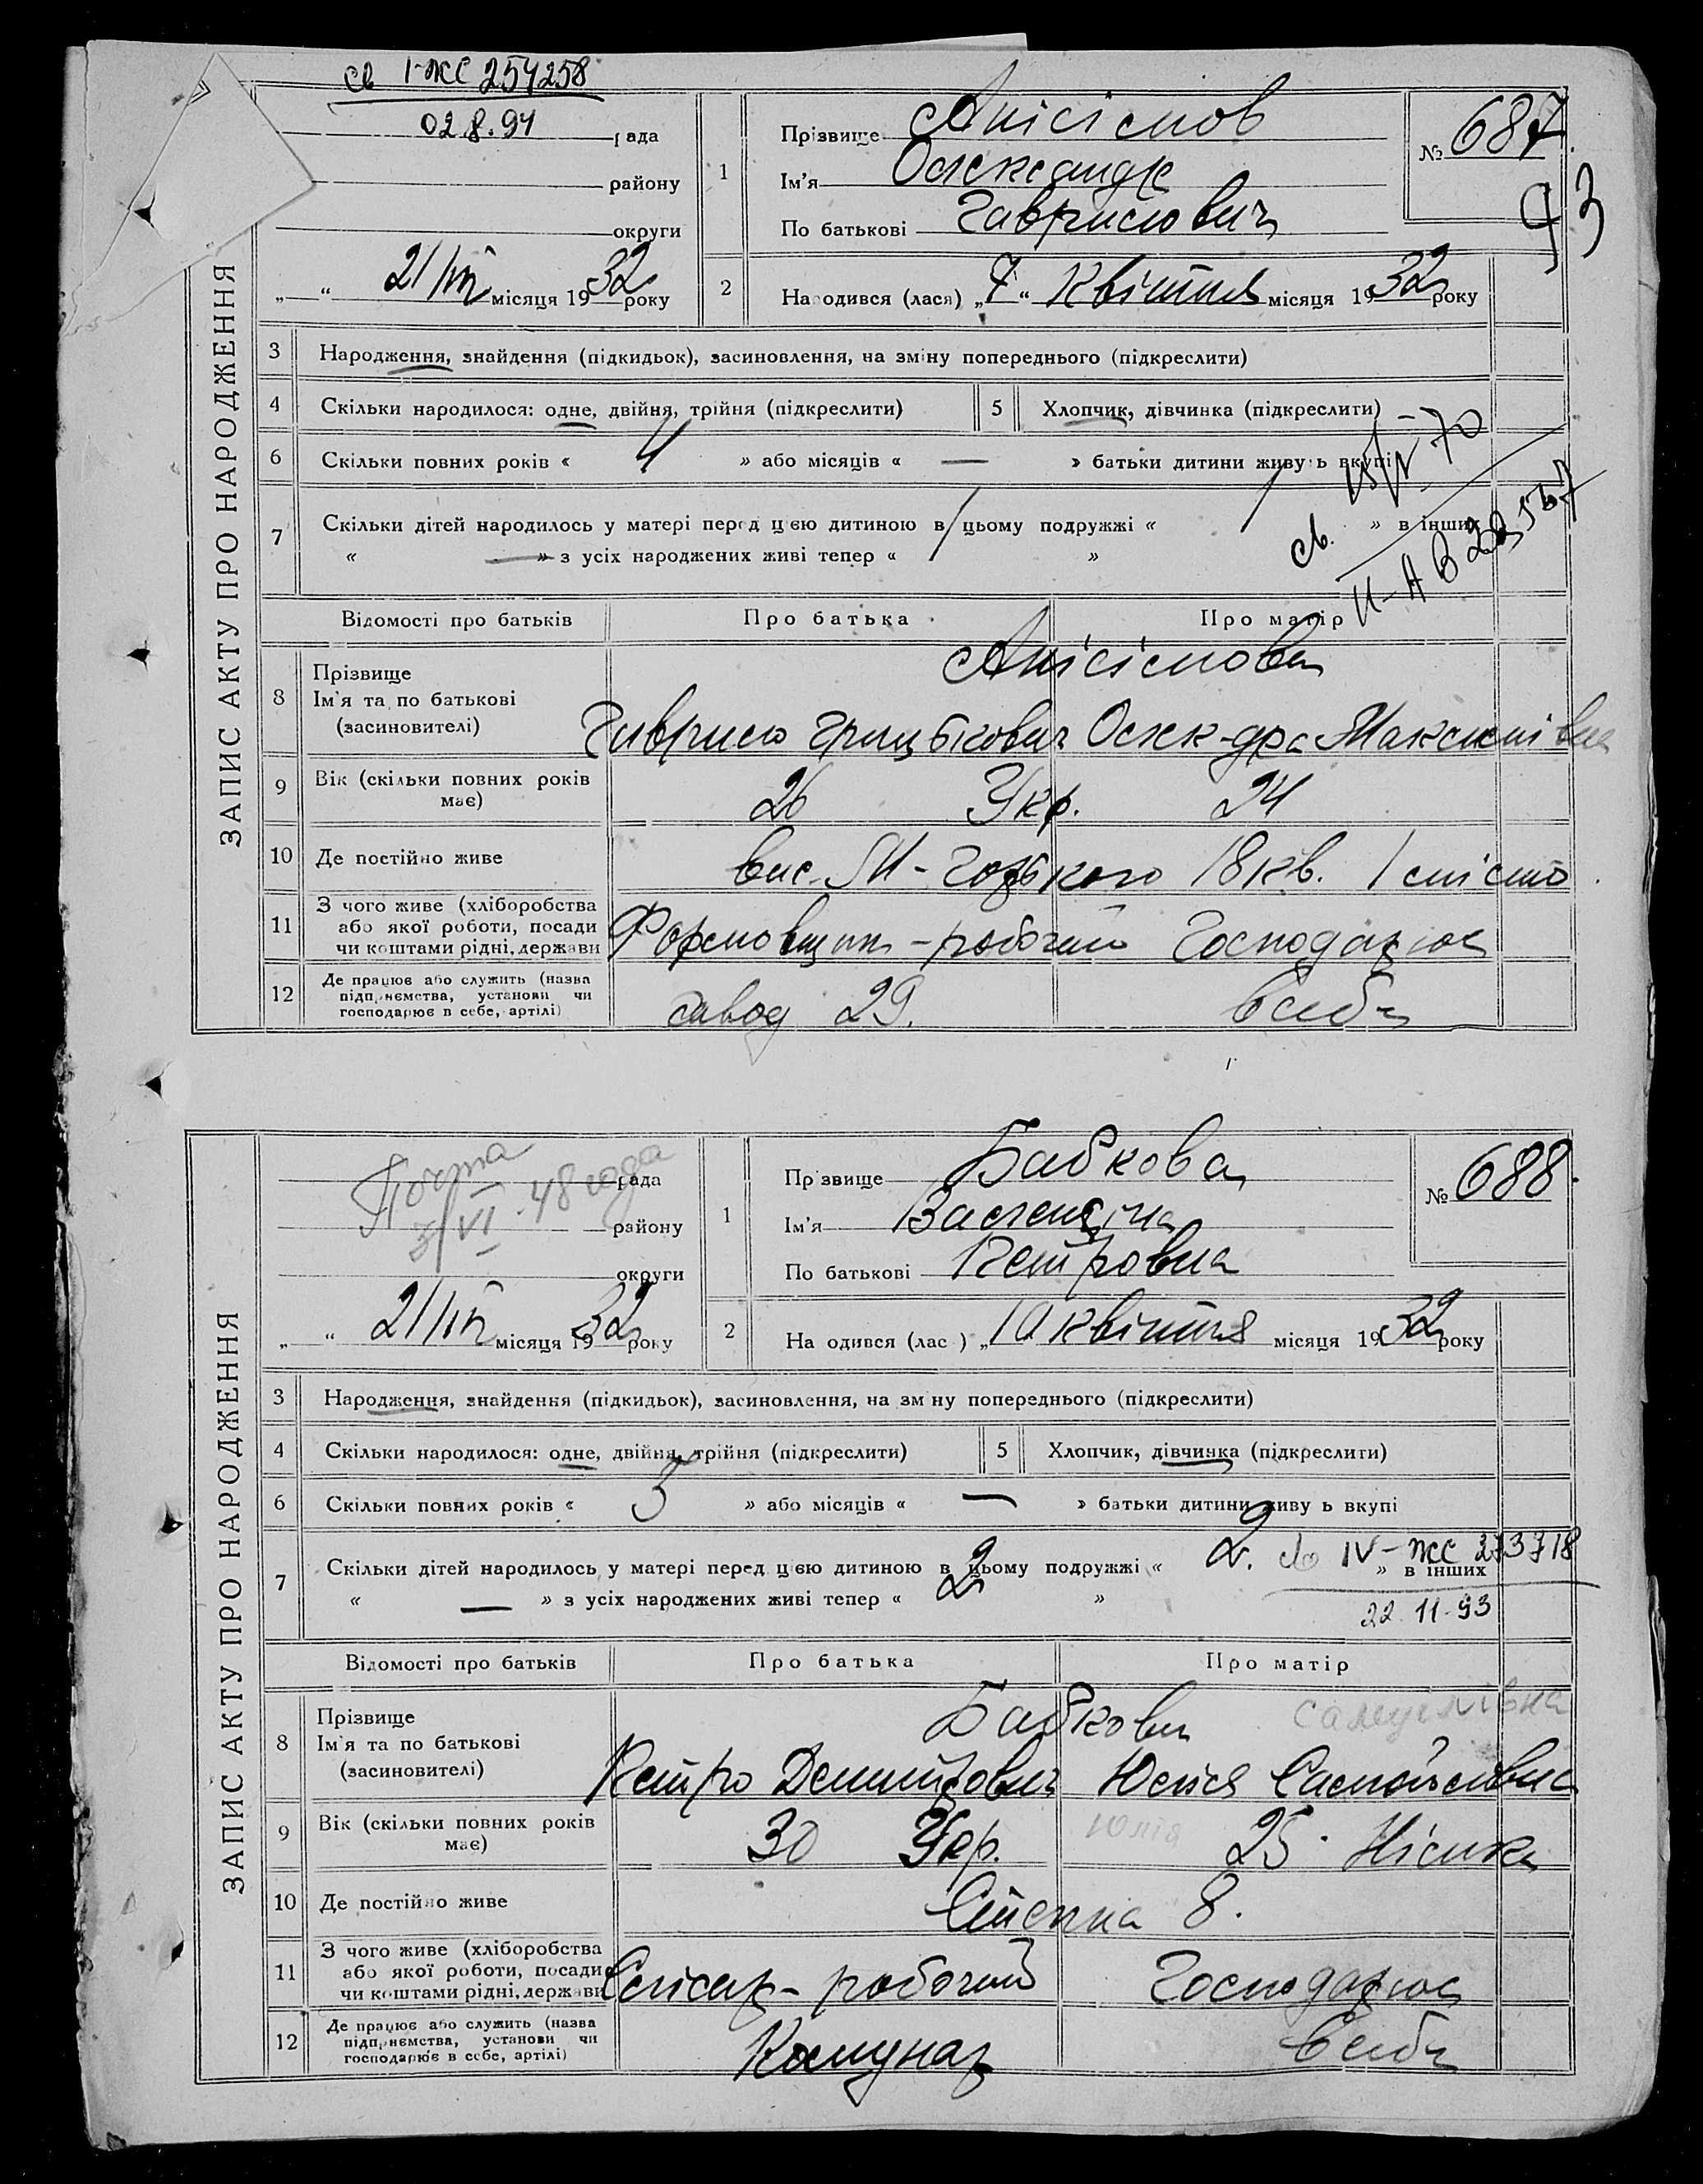 св І-ЖС 254258
02.8.94 рада
району
округи
„ “ 21/IV місяця 1932 року
1
Прізвище Анісімов
Ім’я Олександр
По батькові Гаврилович
№ 687.
93
2 Народився (лася) „7“ квітня місяця 1932 року
ЗАПИС АКТУ ПРО НАРОДЖЕННЯ
3 Народження, знайдення (підкидьок), засиновлення, на зміну попереднього (підкреслити)
4 Скільки народилося: одне, двійня, трійня (підкреслити) 5 Хлопчик, дівчинка (підкреслити)
6 Скільки повних років « 4 » або місяців « — » батьки дитини живуть вкупі
7 Скільки дітей народилось у матері перед цією дитиною в цьому подружжі « 1 » в інших
« — » з усіх народжених живі тепер « 1 »
св. 70
Відомості про батьків Про батька Про матір
8 Прізвище
Ім’я та по батькові
(засновителі)
Анісімови
Гаврило Грицькович Олек-дра Максимівна
9 Вік (скільки повних років має) 26 Укр. 24
10 Де постійно живе вис. М-Горького 18 кв. 1 місто.
11 З чого живе (хліборобства
або якої роботи, посади
чи коштами рідні, держави
Формовщик - робочий Господарює
12 Де працює або служить (назва
підприємства, установи чи
господарює в себе, артілі)
завод 29. в себе
Почта
3/VI - 48 года
рада
району
округи
„ “ 21/IV місяця 1932 року
1
Прізвище Бабкова
Ім’я Валентіна
По батькові Петровна
№ 688.
2 Народився (лася) „10 квітня місяця 1932 року
ЗАПИС АКТУ ПРО НАРОДЖЕННЯ
3 Народження, знайдення (підкидьок), засиновлення, на зміну попереднього (підкреслити)
4 Скільки народилося: одне, двійня, трійня (підкреслити) 5 Хлопчик, дівчинка (підкреслити)
6 Скільки повних років « 5 » або місяців « — » батьки дитини живуть вкупі
7 Скільки дітей народилось у матері перед цією дитиною в цьому подружжі « 2. » в інших
« — » з усіх народжених живі тепер « 2 »
IV-ЖС 273718
22.11.93
Відомості про батьків Про батька Про матір
8 Прізвище
Ім’я та по батькові
(засиновителі)
Бабкови Самуілівна
Петро Демитрович Юлія
9 Вік (скільки повних років має) 30 Укр. Юлія 25. Німка
10 Де постійно живе 8.
11 З чого живе (хліборобства
або якої роботи, посади
чи коштами рідні, держави
Слісар - робочий Господарює
12 Де працює або служить (назва
підприємства, установи чи
господарює в себе, артілі)
Комунар в себе